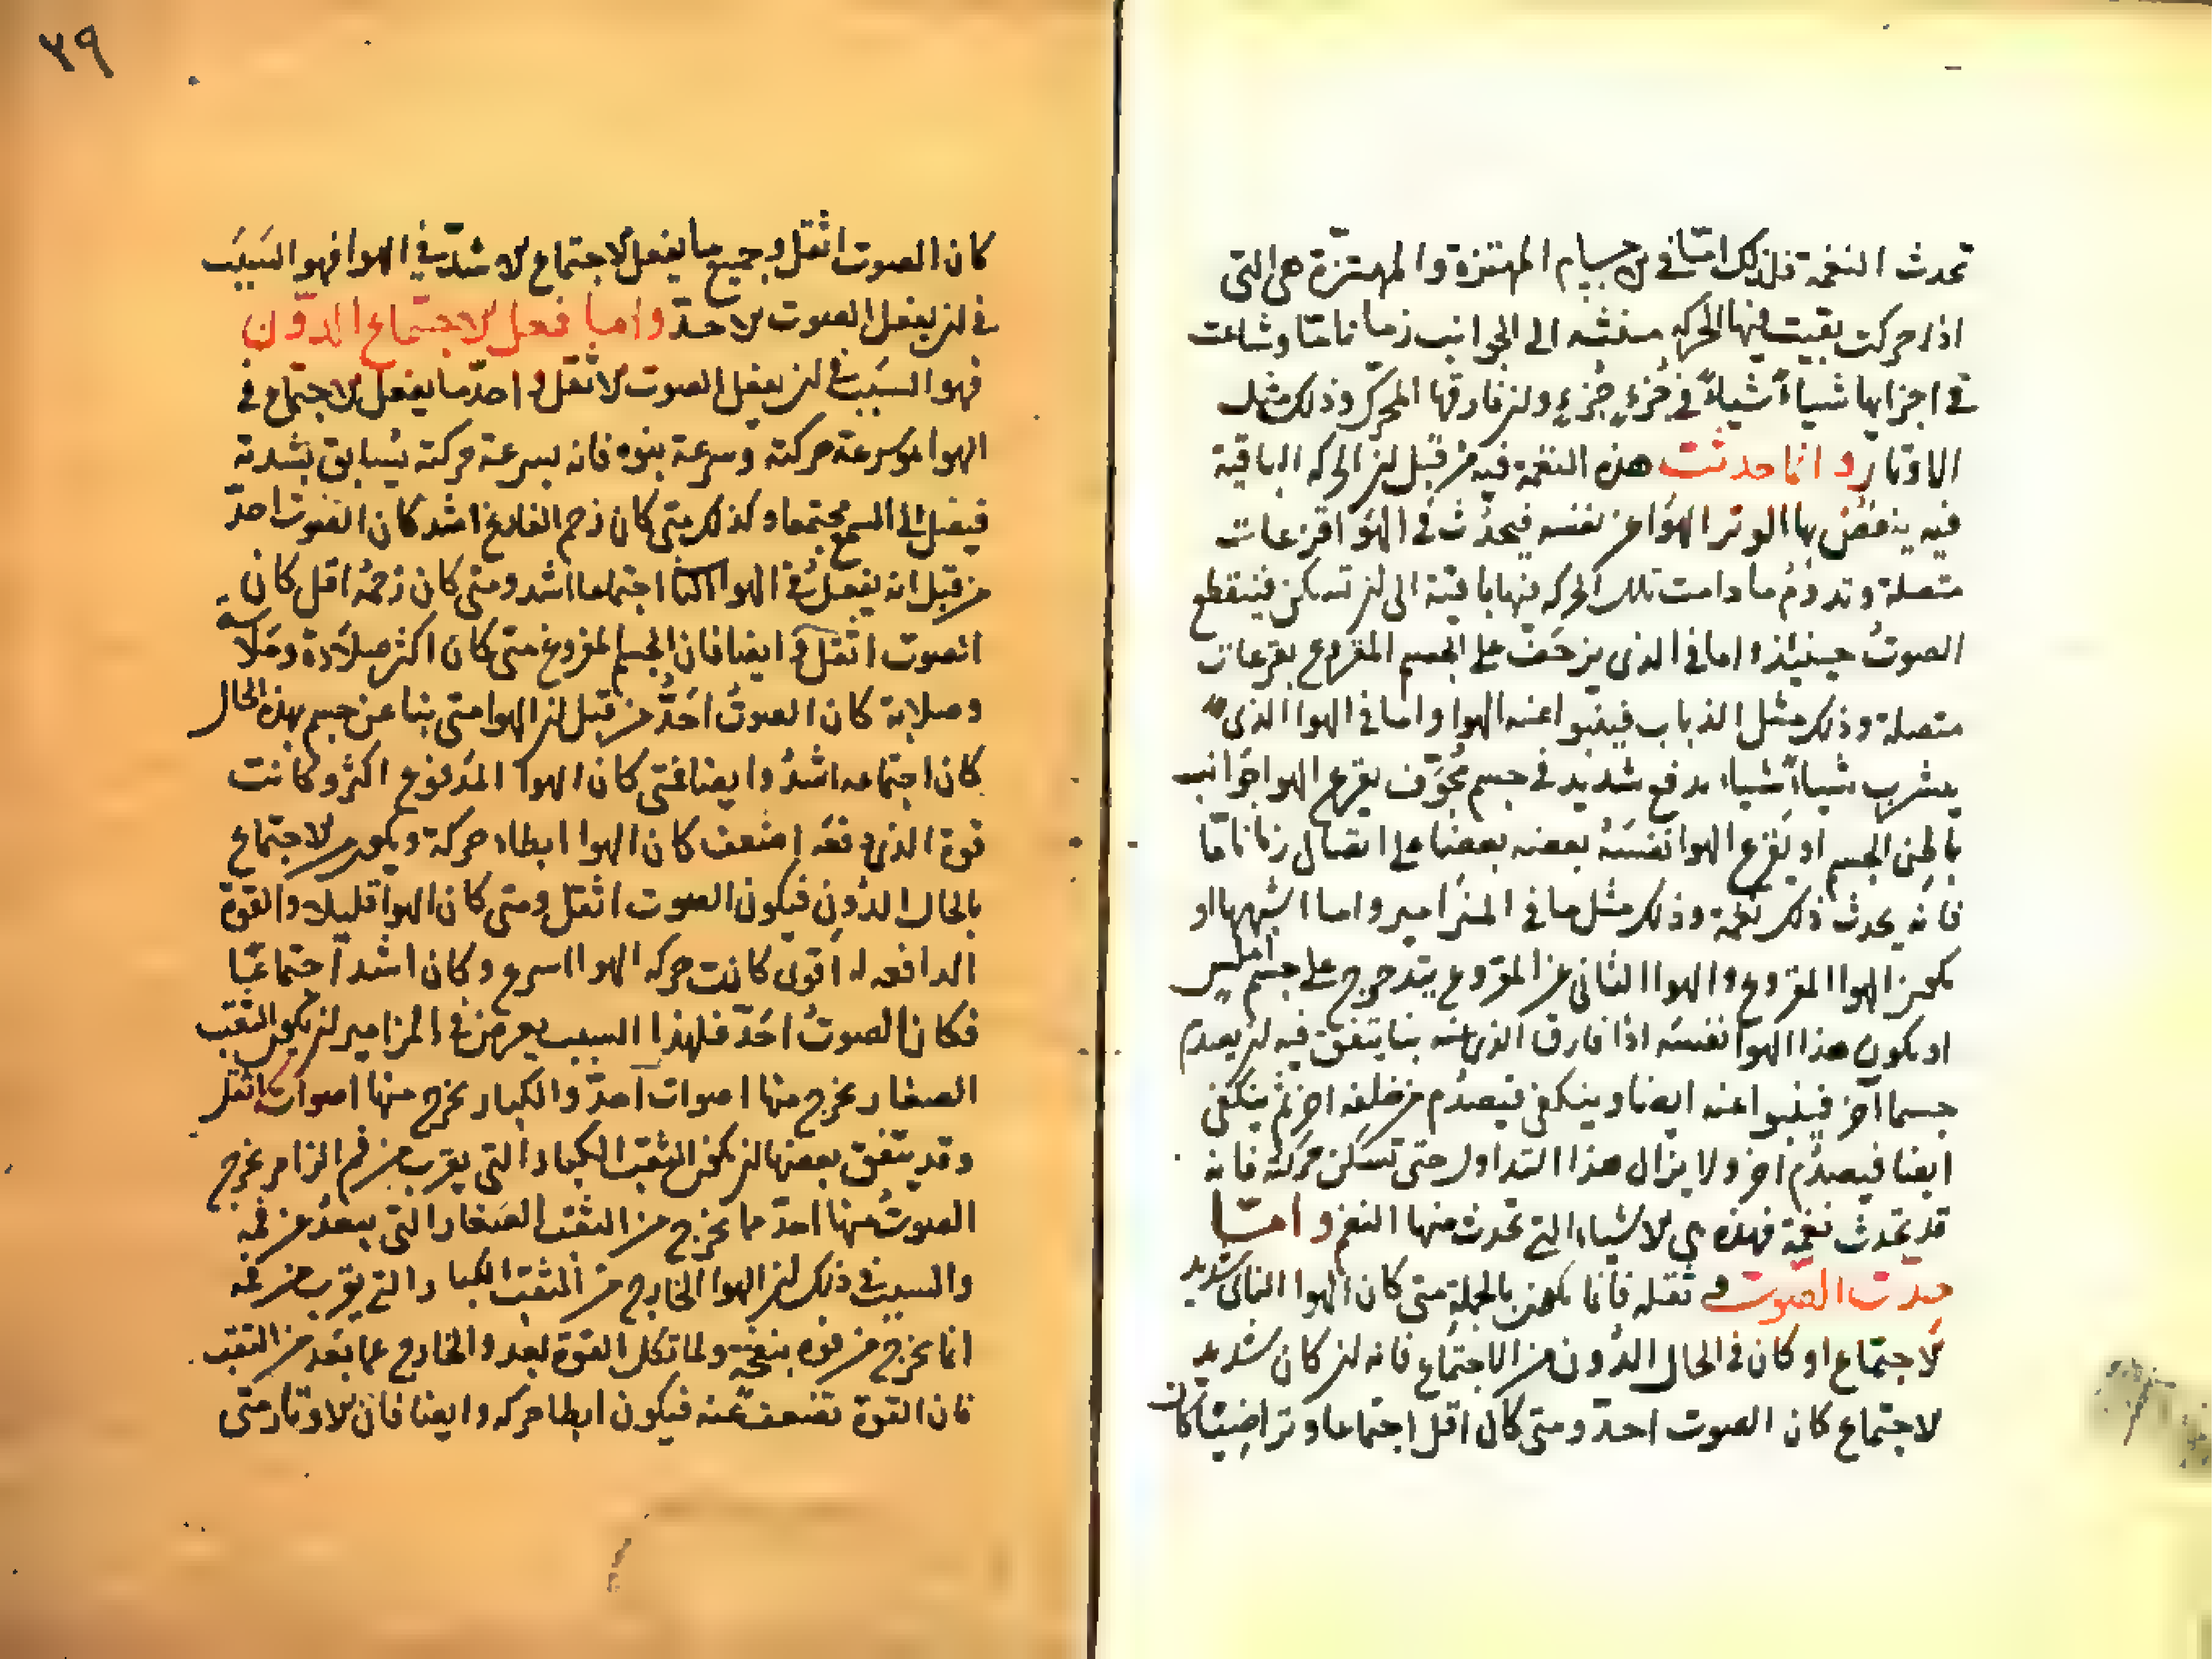 تحدث النغمة فلذلك امّا في الاجسام المهتزة والمهتزّة هي التي
اذا حركت بقيت فيها الحركة منبثه الى الجوانب زمانا مّا وشاعت
في اجزايها شيئاً شيئاً في جُزءٍ جُزءٍ وان فارقها المحرّك وذلك مثل
الاوتار وانما حدثت هذه النغمة فيه من قبل ان الحركه الباقية
فيه ينفض بها الوتر الهوا عن نفسه فيحدُث في الهوا قرعات
متصلة وتدومُ ما دامت تلك الحركه فيها باقية الى ان تسكن فينقطع
الصوتُ حينئذ واما في الذي يزحف على الجسم المقروع بقرعات
متصلة وذلك مثل الذباب فينبوا عنه الهوا واما في الهوا الذي
يتسرب شيئاً شيئاً بدفع شديد في جسم مجوّف يقرع الهوا جوانب
باطن الجسم او يقرع الهوا نفسَهُ بعضه بعضا على اتصال زمانا مّا
فانه يحدث ذلك نغمة وذلك مثل ما في المزامير واما اشبهها او
يكون الهوا المقروع والهوا الثاني عن المقروع يتدحرج على جسم املس
او يكون هذا الهوا نفسه اذا فارق الذي عنه نبا يتفق فيه ان يصدم
جسما آخر فينبوا عنه ايضا وينكفي فيصدُم من خلفه اخر ثم ينكفي
ايضا فيصدُم اخر ولا يزال هذا التداول حتى تسكن حركته فانه
قد تحدث نغمة فهذه هي الاشياء التي تحدث منها النغم وامّا
حدّت الصوت و ثقله فانما يكون بالجملة متى كان الهوا النابى شديد
الاجتماع او كان في الحال الدُون من الاجتماع فانه ان كان شديد
الاجتماع كان الصوت احدّ ومتى كان اقل اجتماعا وتراضيا كان
٣٩
كان الصوت اثقل وجميع ما يفعل الاجتماع الاشدّ في الهوا فهو السَبَبَ
في ان يفعل الصوت الاحدّ واما فعل الاجتماع الدّون
فهو السبب في ان يفعل الصوت الاثقل و احدّ ما يفعل الاجتماع في
الهوا هو سرعة حركته وسرعة نبوه فانه بسرعة حركته يسابق بشدته
فيصل الى السمع مجتمعا وكذلك متى كان زحم القارع اشد كان الصوت احدّ
من قبل انه يفعل في الهوا اجتماعا اشد ومتى كان زحمُه اقل كان
الصوت اثقل و ايضا فان الجسم المقروع متى كان اكثر صلادة وملاسة
وصلابة كان الصوتُ احَدُّ من قبل ان الهوا متى نبا عن جسم بهذه الحال
كان اجتماعه اشدُ وايضا فمتى كان الهوا المدفوع اكثر وكانت
قوة الذي دفعه اضعف كان الهوا ابطاء حركة ويكون الاجتماع
بالحال الدُون فيكون الصوت اثقل ومتى كان الهوا قليلا والقوة
الدافعه له اقوى كانت حركه الهوا اسرع وكان اشد اجتماعًا
فكان الصوتُ احَدّ فلهذا السبب يعرض في المزامير ان يكون الثقب
الصغار يخرج منها اصوات احدّ والكبار يخرج منها اصوات اثقل
وقد يتفق بعضها ان يكون الثقب الكبار التي يقرب من فم الزامر يخرج
الصوتُ منها احدّ مما يخرج من الثقب الصغار التي يبعدُ عن فمه
والسبب في ذلك ان الهوا الخارج من الثقب الكبار التي يقرب من فمه
انما يخرج من فوه بنفخة ولما تكل القوة بعد والخارج عما بعد من الثقب
فان القوة تضعف عنه فيكون ابطا حركه وايضا فان الاوتار متى